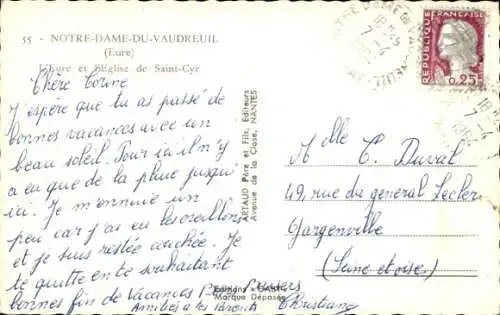 55 - NOTRE-DAME-DU-VAUDREUIL
(Eure)
L'Eure et l'Eglise de Saint-Cyr
Chère Corine
J'espère que tu as passé de
bonnes vacances avec un
beau soleil. Pour ici il n'y
a eu que de la pluie jusqu'
ici. Je m'ennuie un
peu car j'ai eu les oreillons
et je suis restée couchée. Je
te quitte en te souhaitant
bonne fin de Vacances
Amitiés à tes parents
Christiane
ARTAUD Père et Fils, Editeurs
Avenue de la Close, NANTES
Editions "GABY"
Marque Déposée
REPUBLIQUE FRANÇAISE
0,25
18H45
7-4
Melle C. Duval
49, rue du general Leclerc
Gargenville
(Seine et oise)